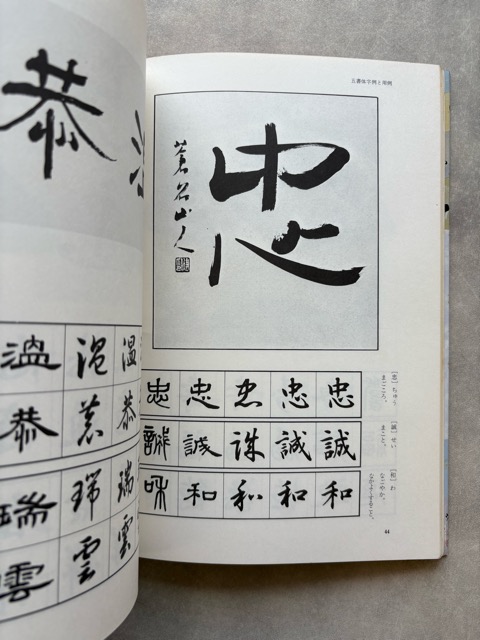 五書体字例と用例
忠
蒼石山人
忠 忠 忠 忠 忠
[忠] ちゅう
まごころ。
誠 誠 誠 誠 誠
[誠] せい
まこと。
和 和 和 和 和
[和] わ
なごやか。
なかよくすること。
44
恭
温 温 温
恭 恭 恭
瑞 瑞 瑞
雲 雲 雲